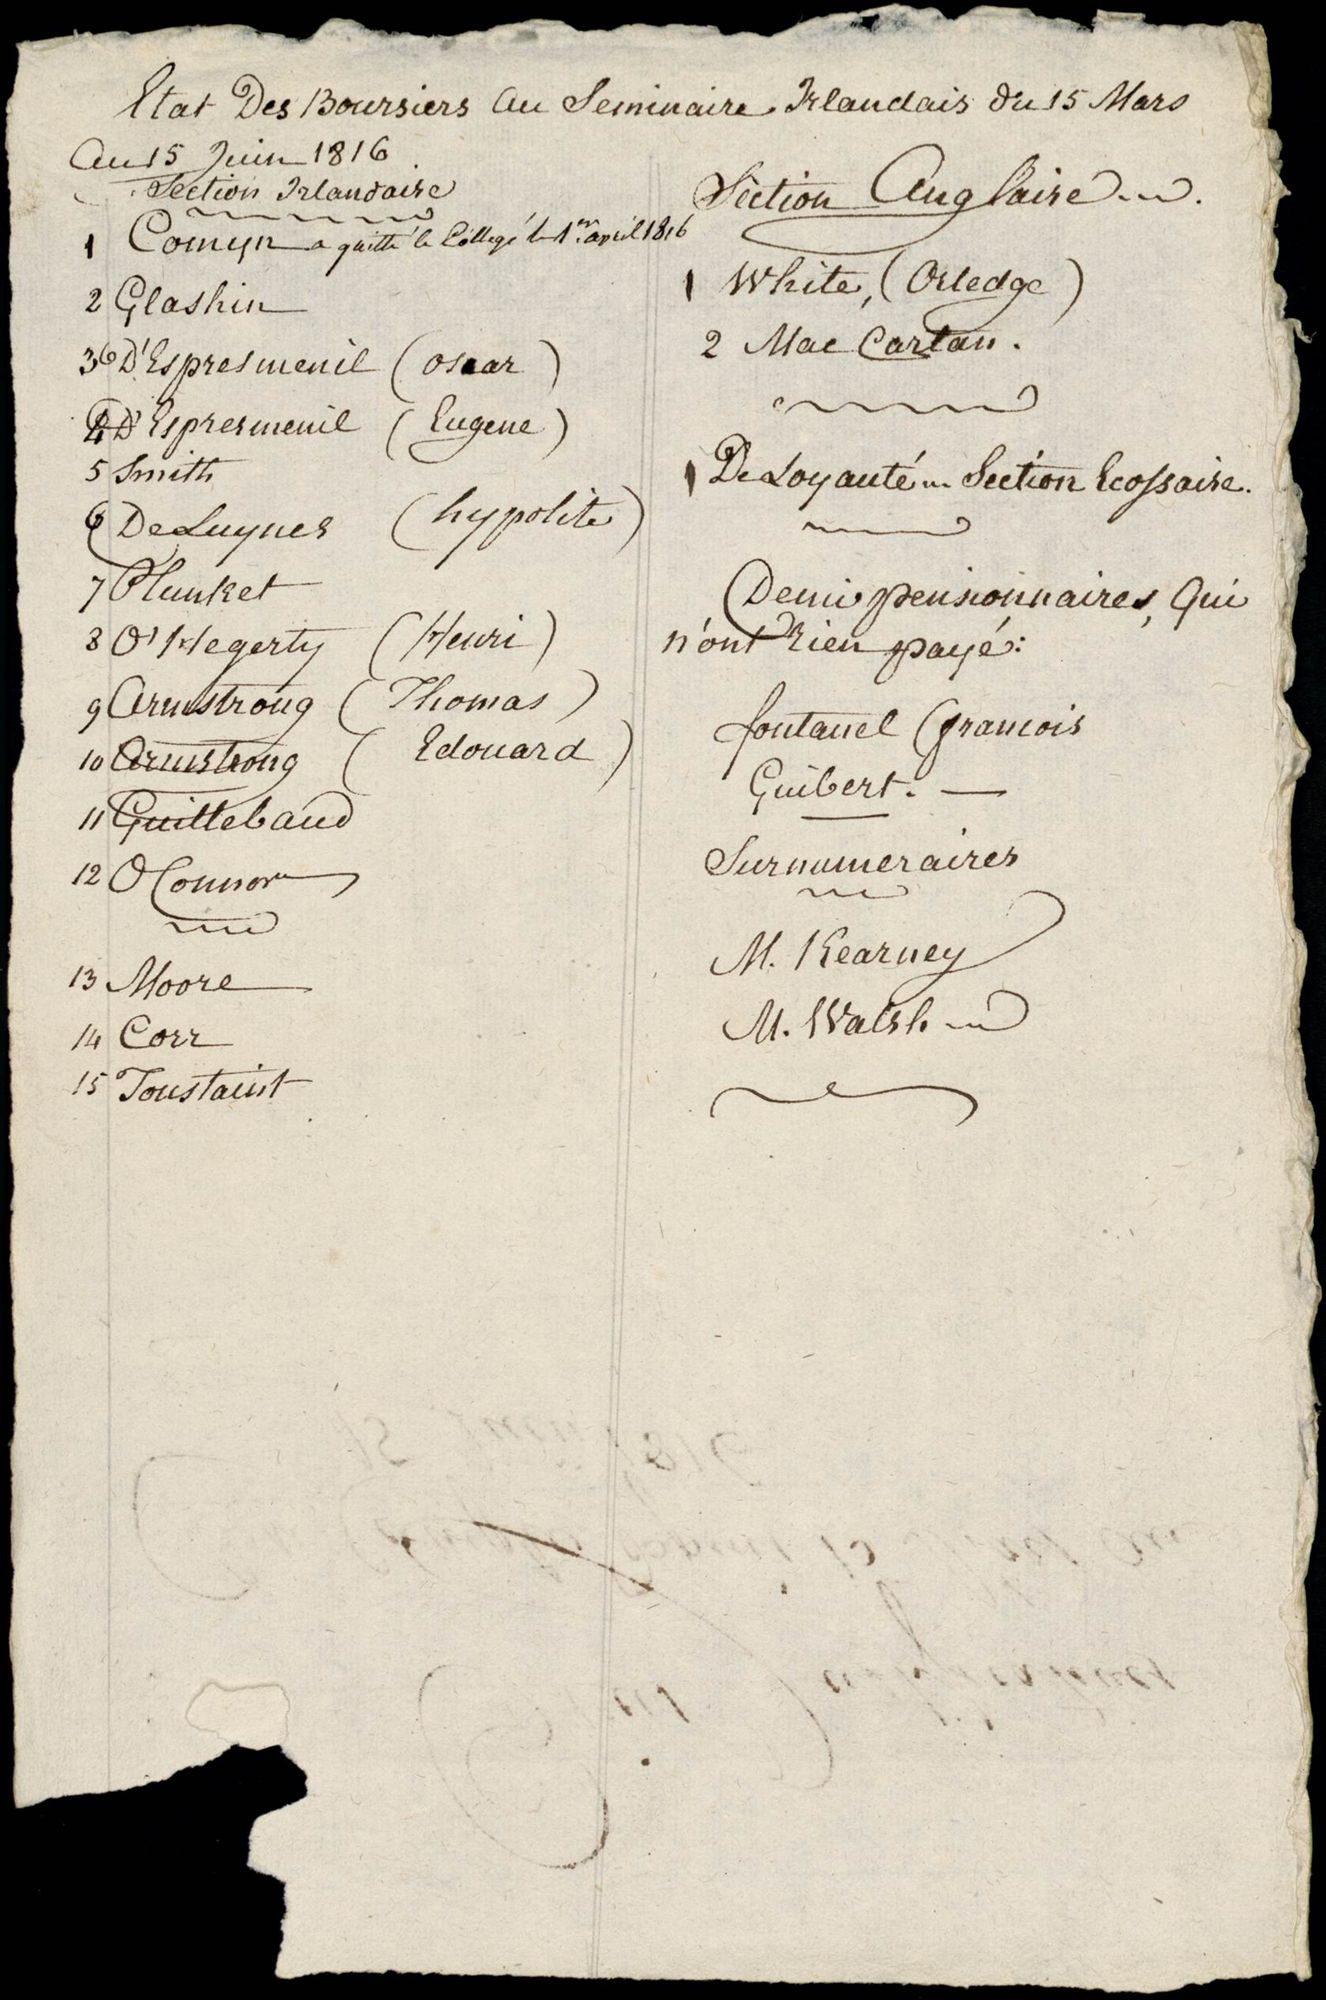 Etat Des Boursiers au Seminaire Irlandais du 15 Mars
au 15 Juin 1816
Section Irlandaise
1 Comyn a quitté le Collegé le 1er avril 1816
2 Glashin
3 D'Espresmenil (Oscar)
4 D'Espresmenil (Eugene)
5 Smith
6 De Luynes (hypolite)
7 Plunket
8 O'Hegerty (Henri)
9 Armstrong (Thomas)
10 Armstrong (Edouard)
11 Guillebaud
12 O Connor
13 Moore
14 Corr
15 Toustaint
Section Anglaise
1 White, (Orledge)
2 Mac Cartan.
1 De Loyauté Section Ecossaise.
Demi pensionnaires, qui
n'ont Rien payé:
fontanel (francois
Guibert. —
Surnumeraires
M. Kearney
M. Walsh